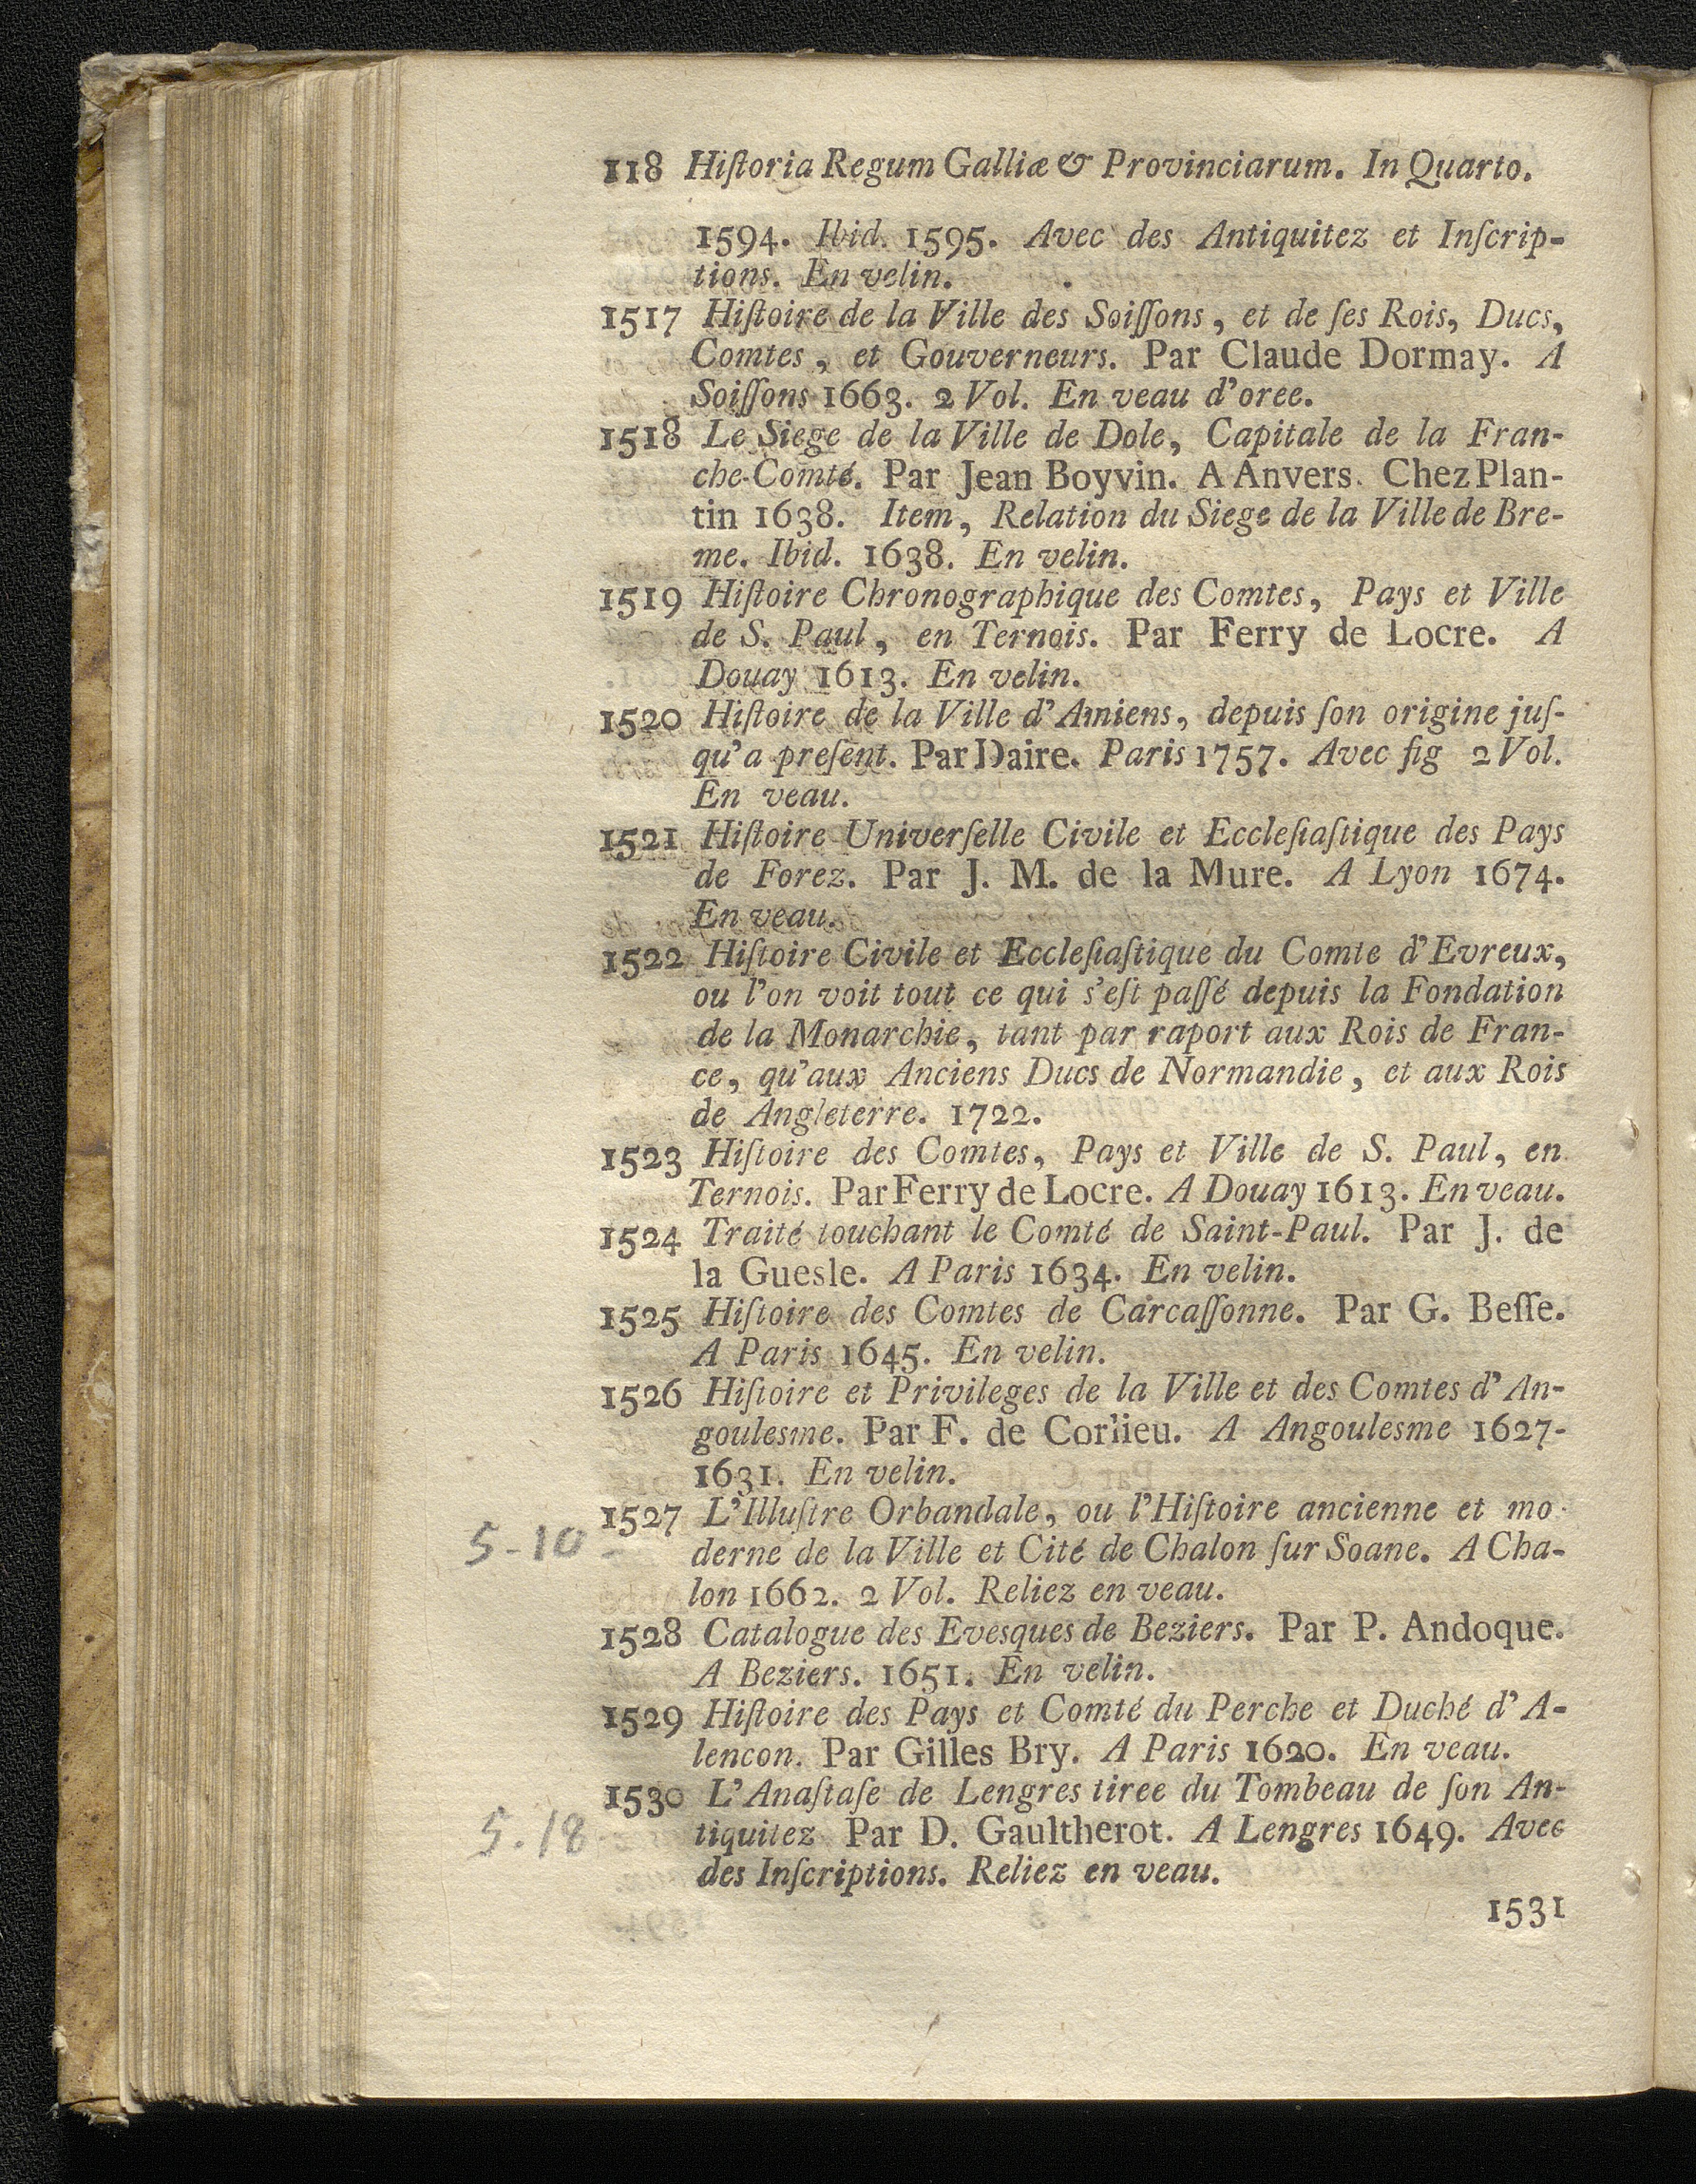 118 Hiſtoria Regum Galliæ & Provinciarum. In Quarto.
1594. Ibid. 1595. Avec des Antiquitez et Inſcrip-
tions. En velin.
1517 Hiſtoire de la Ville des Soiſſons, et de ſes Rois, Ducs,
Comtes, et Gouverneurs. Par Claude Dormay. A
Soiſſons 1663. 2 Vol. En veau d'oree.
1518 Le Siege de la Ville de Dole, Capitale de la Fran-
che-Comté. Par Jean Boyvin. A Anvers. Chez Plan-
tin 1638. Item, Relation du Siege de la Ville de Bre-
me. Ibid. 1638. En velin.
1519 Hiſtoire Chronographique des Comtes, Pays et Ville
de S. Paul, en Ternois. Par Ferry de Locre. A
Douay 1613. En velin.
1520 Hiſtoire de la Ville d'Amiens, depuis ſon origine juſ-
qu'a preſent. Par Daire. Paris 1757. Avec fig 2 Vol.
En veau.
1521 Hiſtoire Univerſelle Civile et Eccleſiaſtique des Pays
de Forez. Par J. M. de la Mure. A Lyon 1674.
En veau.
1522 Hiſtoire Civile et Eccleſiaſtique du Comte d'Evreux,
ou l'on voit tout ce qui s'eſt paſſé depuis la Fondation
de la Monarchie, tant par raport aux Rois de Fran-
ce, qu'aux Anciens Ducs de Normandie, et aux Rois
de Angleterre. 1722.
1523 Hiſtoire des Comtes, Pays et Ville de S. Paul, en
Ternois. Par Ferry de Locre. A Douay 1613. En veau.
1524 Traité touchant le Comté de Saint-Paul. Par J. de
la Guesle. A Paris 1634. En velin.
1525 Hiſtoire des Comtes de Carcaſſonne. Par G. Beſſe.
A Paris 1645. En velin.
1526 Hiſtoire et Privileges de la Ville et des Comtes d'An-
goulesme. Par F. de Corlieu. A Angoulesme 1627-
1631. En velin.
1527 L'Illuſtre Orbandale, ou l'Hiſtoire ancienne et mo-
5-10 - derne de la Ville et Cité de Chalon ſur Soane. A Cha-
lon 1662. 2 Vol. Reliez en veau.
1528 Catalogue des Evesques de Beziers. Par P. Andoque.
A Beziers. 1651. En velin.
1529 Hiſtoire des Pays et Comté du Perche et Duché d'A-
lencon. Par Gilles Bry. A Paris 1620. En veau.
1530 L'Anaſtaſe de Lengres tiree du Tombeau de ſon An-
5.18 - tiquitez Par D. Gaultherot. A Lengres 1649. Avec
des Inſcriptions. Reliez en veau.
1531